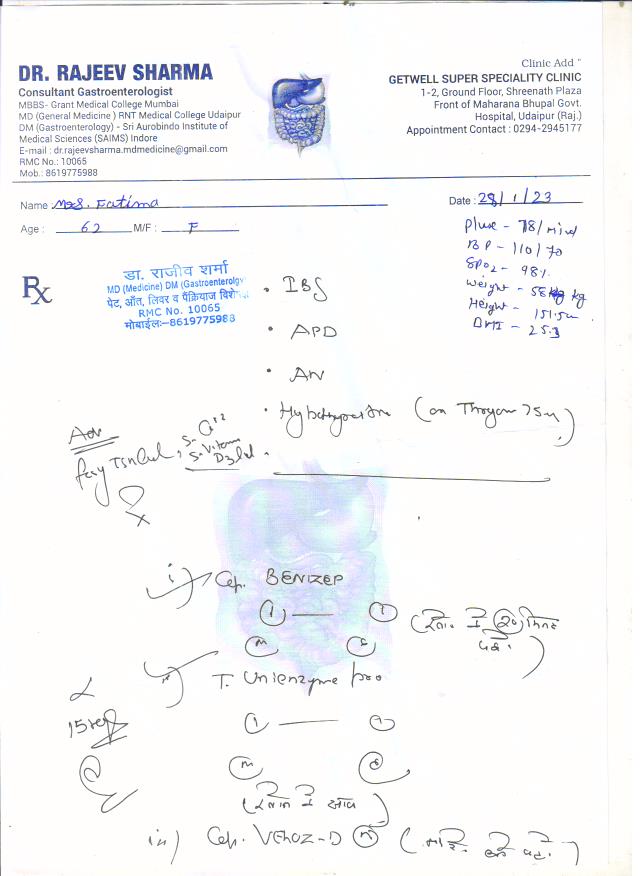 DR. RAJEEV SHARMA
Consultant Gastroenterologist
MBBS- Grant Medical College Mumbai
MD (General Medicine ) RNT Medical College Udaipur
DM (Gastroenterology) - Sri Aurobindo Institute of
Medical Sciences (SAIMS) Indore
E-mail : dr.rajeevsharma.mdmedicine@gmail.com
RMC No.: 10065
Mob.: 8619775988
Clinic Add "
GETWELL SUPER SPECIALITY CLINIC
1-2, Ground Floor, Shreenath Plaza
Front of Maharana Bhupal Govt.
Hospital, Udaipur (Raj.)
Appointment Contact : 0294-2945177
Name Mrs. Fatima
Date : 28/1/23
Age : 62 M/F : F
Pluse - 78/mind
BP - 110/70
SPO2 - 98%
Weight - 58 kg
Height - 151.5cm
BMI - 25.3
Rx
डा. राजीव शर्मा
MD (Medicine) DM (Gastroenterology
पेट, आँत, लिवर व पैंक्रियाज विशे
RMC No. 10065
मोबाईलः-8619775988
• IBS
• APD
• AN
(on 75
Adv
S. Vitamin
D3
i) Cap. BENIZEP
1 — 1
M E
20 मिनट
ii) T. Unienzyme pro
1 — 1
M E
15
iii) Cap. VEloz-D M